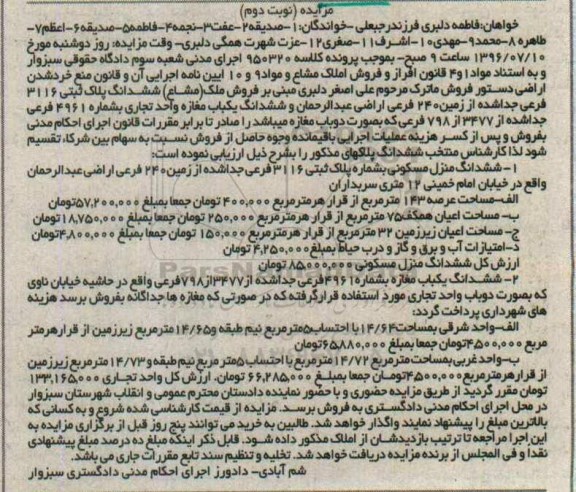 مزایده (نوبت دوم)
خواهان:فاطمه دلبری فرزندرجبعلی -خواندگان:۱-صدیقه۲-عفت۳-نجمه۴-فاطمه۵-صدیقه۶-اعظم۷-
طاهره ۸-محمد۹-مهدی۱۰-اشرف۱۱-صغری۱۲-عزت شهرت همگی دلبری- وقت مزایده: روز دوشنبه مورخ
۱۳۹۶/۰۷/۱۰ ساعت ۹ صبح- بموجب پرونده کلاسه ۹۵۰۳۲۰ اجرای مدنی شعبه سوم دادگاه حقوقی سبزوار
و به استناد مواد۱و۴ قانون افراز و فروش املاک مشاع و مواد۹ و ۱۰ آیین نامه اجرایی آن و قانون منع خردشدن
اراضی دستور فروش ماترک مرحوم علی اصغر دلبری مبنی بر فروش ملک(مشاع) ششدانگ پلاک ثبتی ۳۱۱۶
فرعی جداشده از زمین۲۴۰ فرعی اراضی عبدالرحمان و ششدانگ یکباب مغازه واحد تجاری بشماره ۴۹۶۱ فرعی
جداشده از ۳۴۷۷ از ۷۹۸ فرعی که بصورت دوباب مغازه میباشد را صادر تا برابر مقررات قانون اجرای احکام مدنی
بفروش و پس از کسر هزینه عملیات اجرایی باقیمانده وجوه حاصل از فروش نسبت به سهام بین شرکا، تقسیم
شود لذا کارشناس منتخب ششدانگ پلاکهای مذکور را بشرح ذیل ارزیابی نموده است:
۱- ششدانگ منزل مسکونی بشماره پلاک ثبتی ۳۱۱۶فرعی جداشده از زمین۲۴۰ فرعی اراضی عبدالرحمان
واقع در خیابان امام خمینی ۱۲ متری سربداران
الف-مساحت عرصه۱۴۳ مترمربع از قرار هرمترمربع ۴۰۰,۰۰۰ تومان جمعا بمبلغ ۵۷,۲۰۰,۰۰۰تومان
ب- مساحت اعیان همکف۷۵ مترمربع از قرار هرمترمربع ۲۵۰,۰۰۰ تومان جمعا بمبلغ ۱۸,۷۵۰,۰۰۰ تومان
ج- مساحت اعیان زیرزمین ۳۲ مترمربع از قرار هرمترمربع ۱۵۰,۰۰۰ تومان جمعا بمبلغ ۴,۸۰۰,۰۰۰تومان
د-امتیازات آب و برق و گاز و درب حیاط بمبلغ۴,۲۵۰,۰۰۰ تومان
ارزش کل ششدانگ منزل مسکونی ۸۵,۰۰۰,۰۰۰ تومان
۲- ششدانگ یکباب مغازه بشماره۴۹۶۱فرعی جداشده از۳۴۷۷از۷۹۸فرعی واقع در حاشیه خیابان ناوی
که بصورت دوباب واحد تجاری مورد استفاده قرارگرفته که در صورتی که مغازه ها جداگانه بفروش برسد هزینه
های شهرداری پرداخت گردد:
الف-واحد شرقی بمساحت۱۴/۶۴ با احتساب۵مترمربع نیم طبقه و۱۴/۶۵مترمربع زیرزمین از قرارهرمتر
مربع ۴,۵۰۰,۰۰۰تومان جمعا بمبلغ ۶۵,۸۸۰,۰۰۰تومان
ب-واحد غربی بمساحت مترمربع ۱۴/۷۲ مترمربع با احتساب ۵متر مربع نیم طبقه و۱۴/۷۳ مترمربع زیرزمین
از قرار هرمترمربع۴,۵۰۰,۰۰۰تومان جمعا بمبلغ ۶۶,۲۸۵,۰۰۰ تومان. ارزش کل واحد تجاری ۱۳۳,۱۶۵,۰۰۰
تومان مقرر گردید از طریق مزایده حضوری و با حضور نماینده دادستان محترم عمومی و انقلاب شهرستان سبزوار
در محل اجرای احکام مدنی دادگستری به فروش برسد. مزایده از قیمت کارشناسی شده شروع و به کسانی که
بالاترین مبلغ را پیشنهاد نمایند واگذار خواهد شد. طالبین به خرید می توانند پنج روز قبل از برگزاری مزایده به
این اجرا مراجعه تا ترتیب بازدیدشان از املاک مذکور داده شود. قابل ذکر اینکه مبلغ ده درصد مبلغ پیشنهادی
نقدا و فی المجلس از برنده مزایده دریافت خواهد شد. تخلیه و تنظیم سند تابع مقررات جاری می باشد.
شم آبادی- دادورز اجرای احکام مدنی دادگستری سبزوار